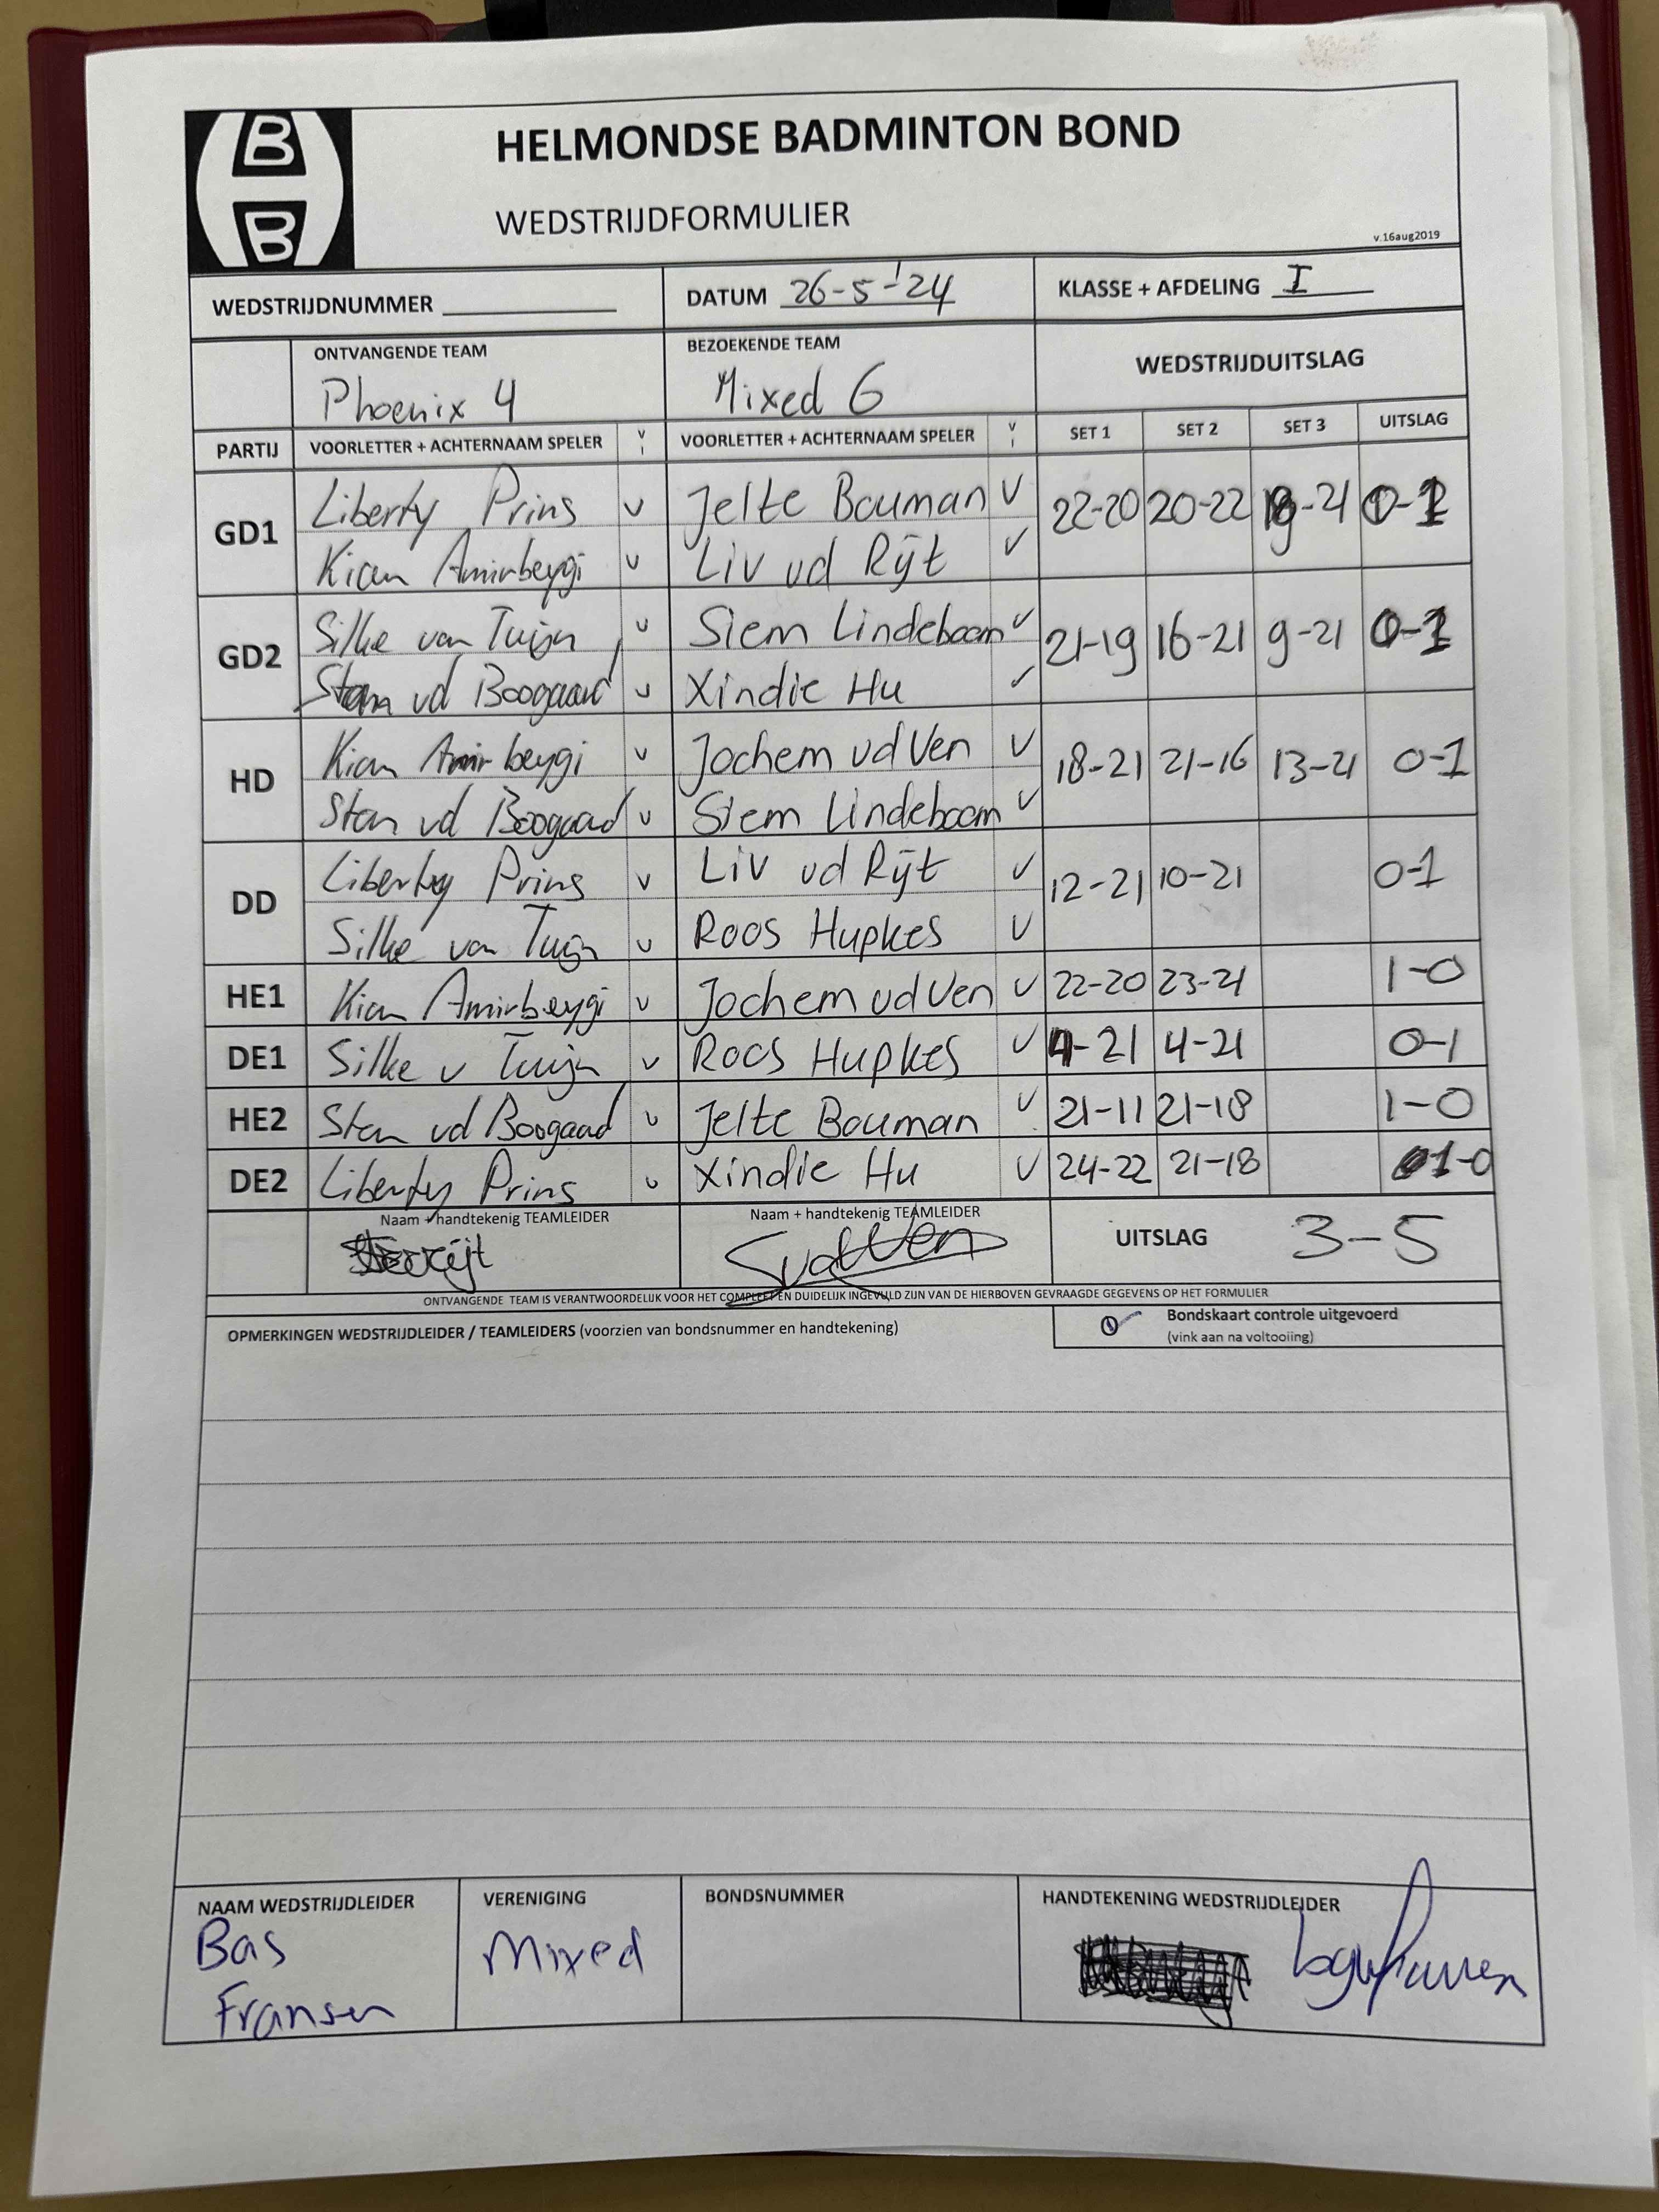 B
B
HELMONDSE BADMINTON BOND
WEDSTRIJDFORMULIER
v.16aug2019
WEDSTRIJDNUMMER
DATUM 26-5-'24
KLASSE + AFDELING I
ONTVANGENDE TEAM
BEZOEKENDE TEAM
WEDSTRIJDUITSLAG
Phoenix 4
Mixed 6
PARTIJ VOORLETTER + ACHTERNAAM SPELER V I VOORLETTER + ACHTERNAAM SPELER V I SET 1 SET 2 SET 3 UITSLAG
GD1 Liberty Prins v Jelte Bouman v 22-20 20-22 -21 0-1
Kian Amirbeygi v Liv vd Rijt v
GD2 Silke van Tuijn v Siem Lindeboom v 21-19 16-21 9-21 0-1
Stan vd Boogaard v Xindie Hu v
HD Kian Amirbeygi v Jochem vd Ven v 18-21 21-16 13-21 0-1
Stan vd Boogaard v Siem Lindeboom v
DD Liberty Prins v Liv vd Rijt v 12-21 10-21 0-1
Silke van Tuijn v Roos Hupkes v
HE1 Kian Amirbeygi v Jochem vd Ven v 22-20 23-21 1-0
DE1 Silke v Tuijn v Roos Hupkes v 4-21 4-21 0-1
HE2 Stan vd Boogaard v Jelte Bouman v 21-11 21-18 1-0
DE2 Liberty Prins v Xindie Hu v 24-22 21-18 1-0
Naam + handtekenig TEAMLEIDER
Naam + handtekenig TEAMLEIDER
UITSLAG 3-5
SvdVen
ONTVANGENDE TEAM IS VERANTWOORDELIJK VOOR HET COMPLEET EN DUIDELIJK INGEVULD ZIJN VAN DE HIERBOVEN GEVRAAGDE GEGEVENS OP HET FORMULIER
OPMERKINGEN WEDSTRIJDLEIDER / TEAMLEIDERS (voorzien van bondsnummer en handtekening)
Bondskaart controle uitgevoerd
(vink aan na voltooiing)
NAAM WEDSTRIJDLEIDER
VERENIGING
BONDSNUMMER
HANDTEKENING WEDSTRIJDLEIDER
Bas
Fransen
Mixed